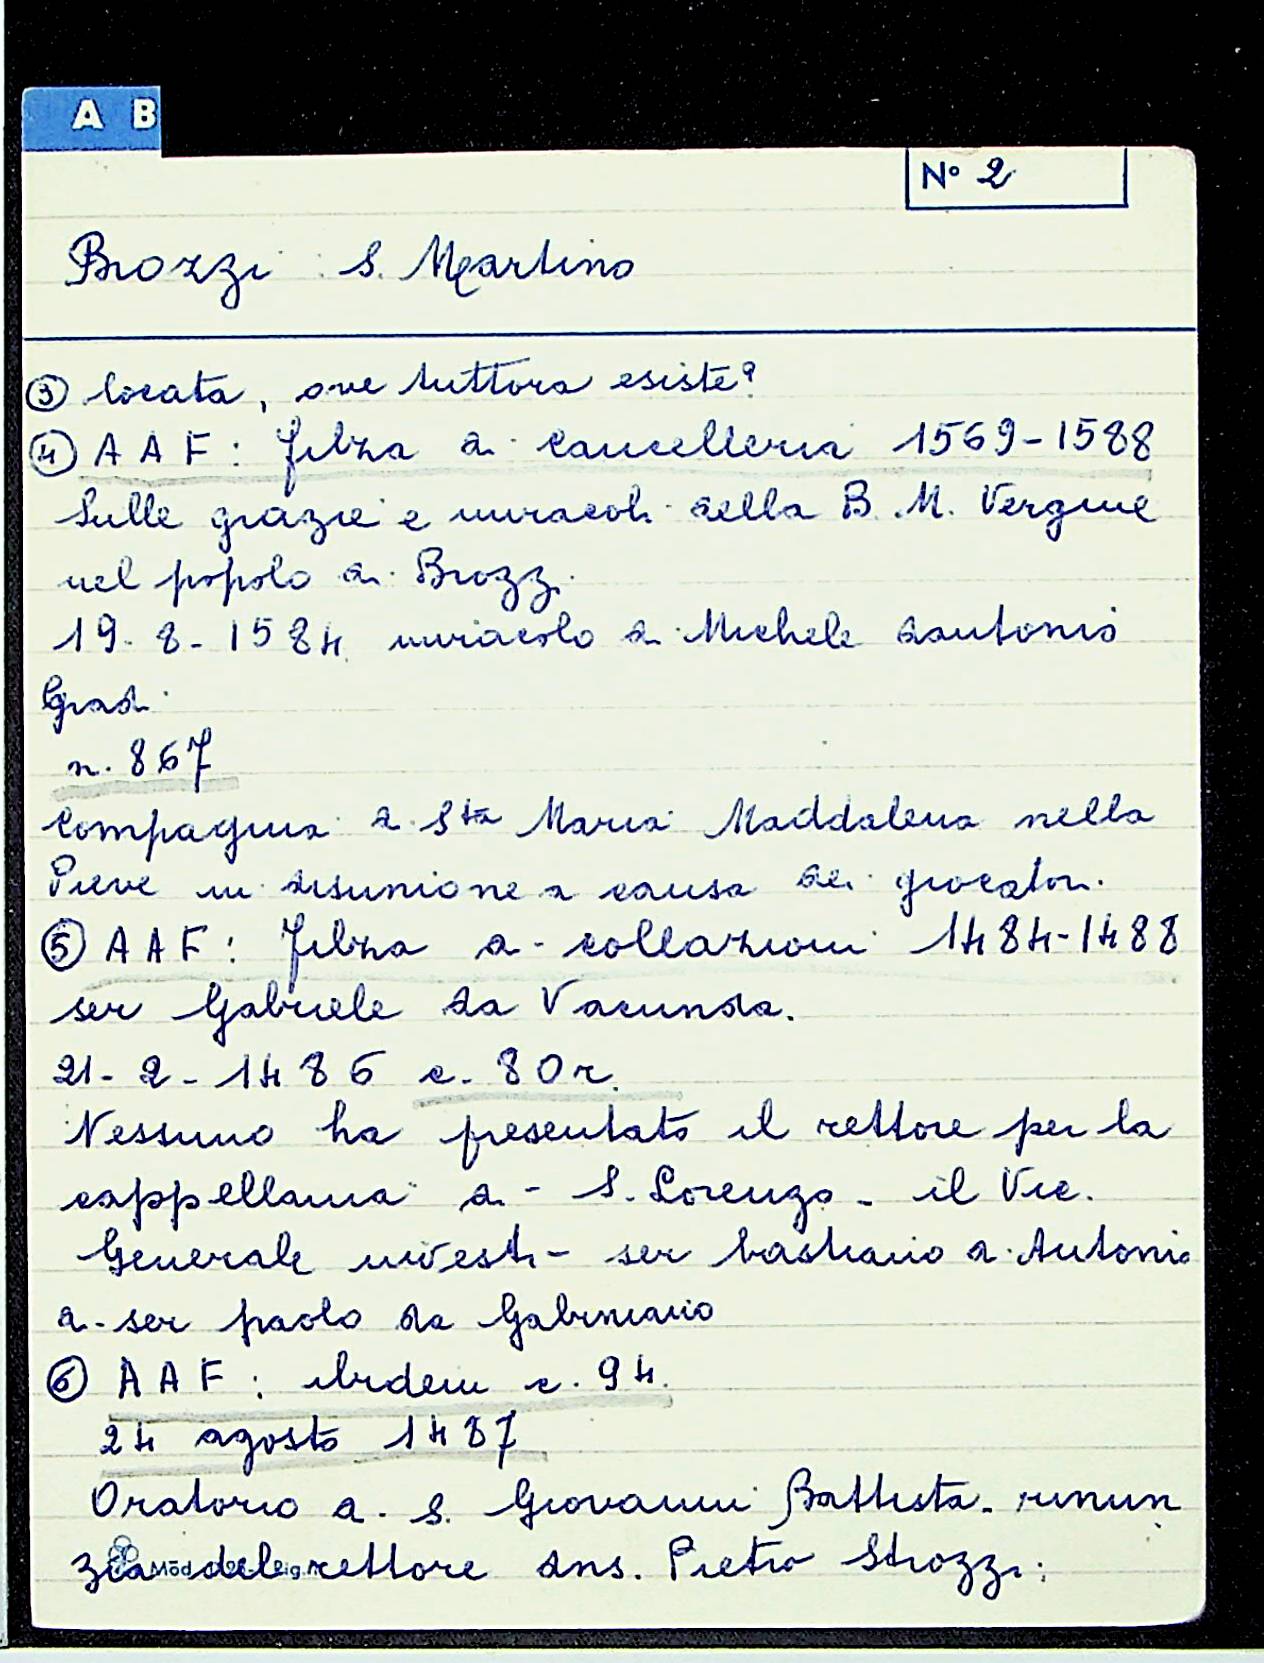 A B
N° 2
Brozzi S. Martino
③ locata, ove tuttora esiste?
④ AAF: filza di cancelleria 1569-1588
Sulle grazie e miracoli della B. M. Vergine
nel popolo di Brozzi
19-8-1584 miracolo di Michele dantonio
Gradi
n. 867
Compagnia di Sta Maria Maddalena nella
Pieve in disunione a causa dei giocatori.
⑤ AAF: filza di collazioni 1484-1488
ser Gabriele da Vacunda.
21-2-1486 c. 80r.
Nessuno ha presentato il rettore per la
cappellania di - S. Lorenzo - il Vic.
Generale investi - ser bastiano di Antonio
di ser paolo da Gabiniano
⑥ AAF: ibidem c. 94.
24 agosto 1487
Oratorio di S. Giovanni Battista - rinun
zia del rettore dns. Pietro Strozzi: